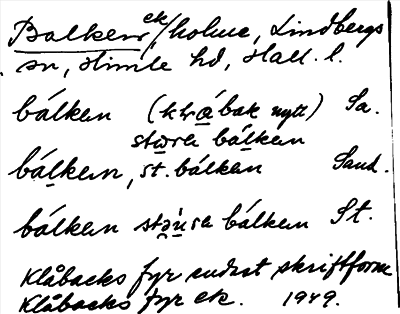 Balken ek/holme, Lindbergs
sn, Himle hd, Hall. l.
bálken (klåbak nytt) Sa.
stora bálken
bálken, st. bálken Sand.
bálken stòra bálken St.
Klåbacks fyr endast skriftform
Klåbacks fyr ek. 1949.